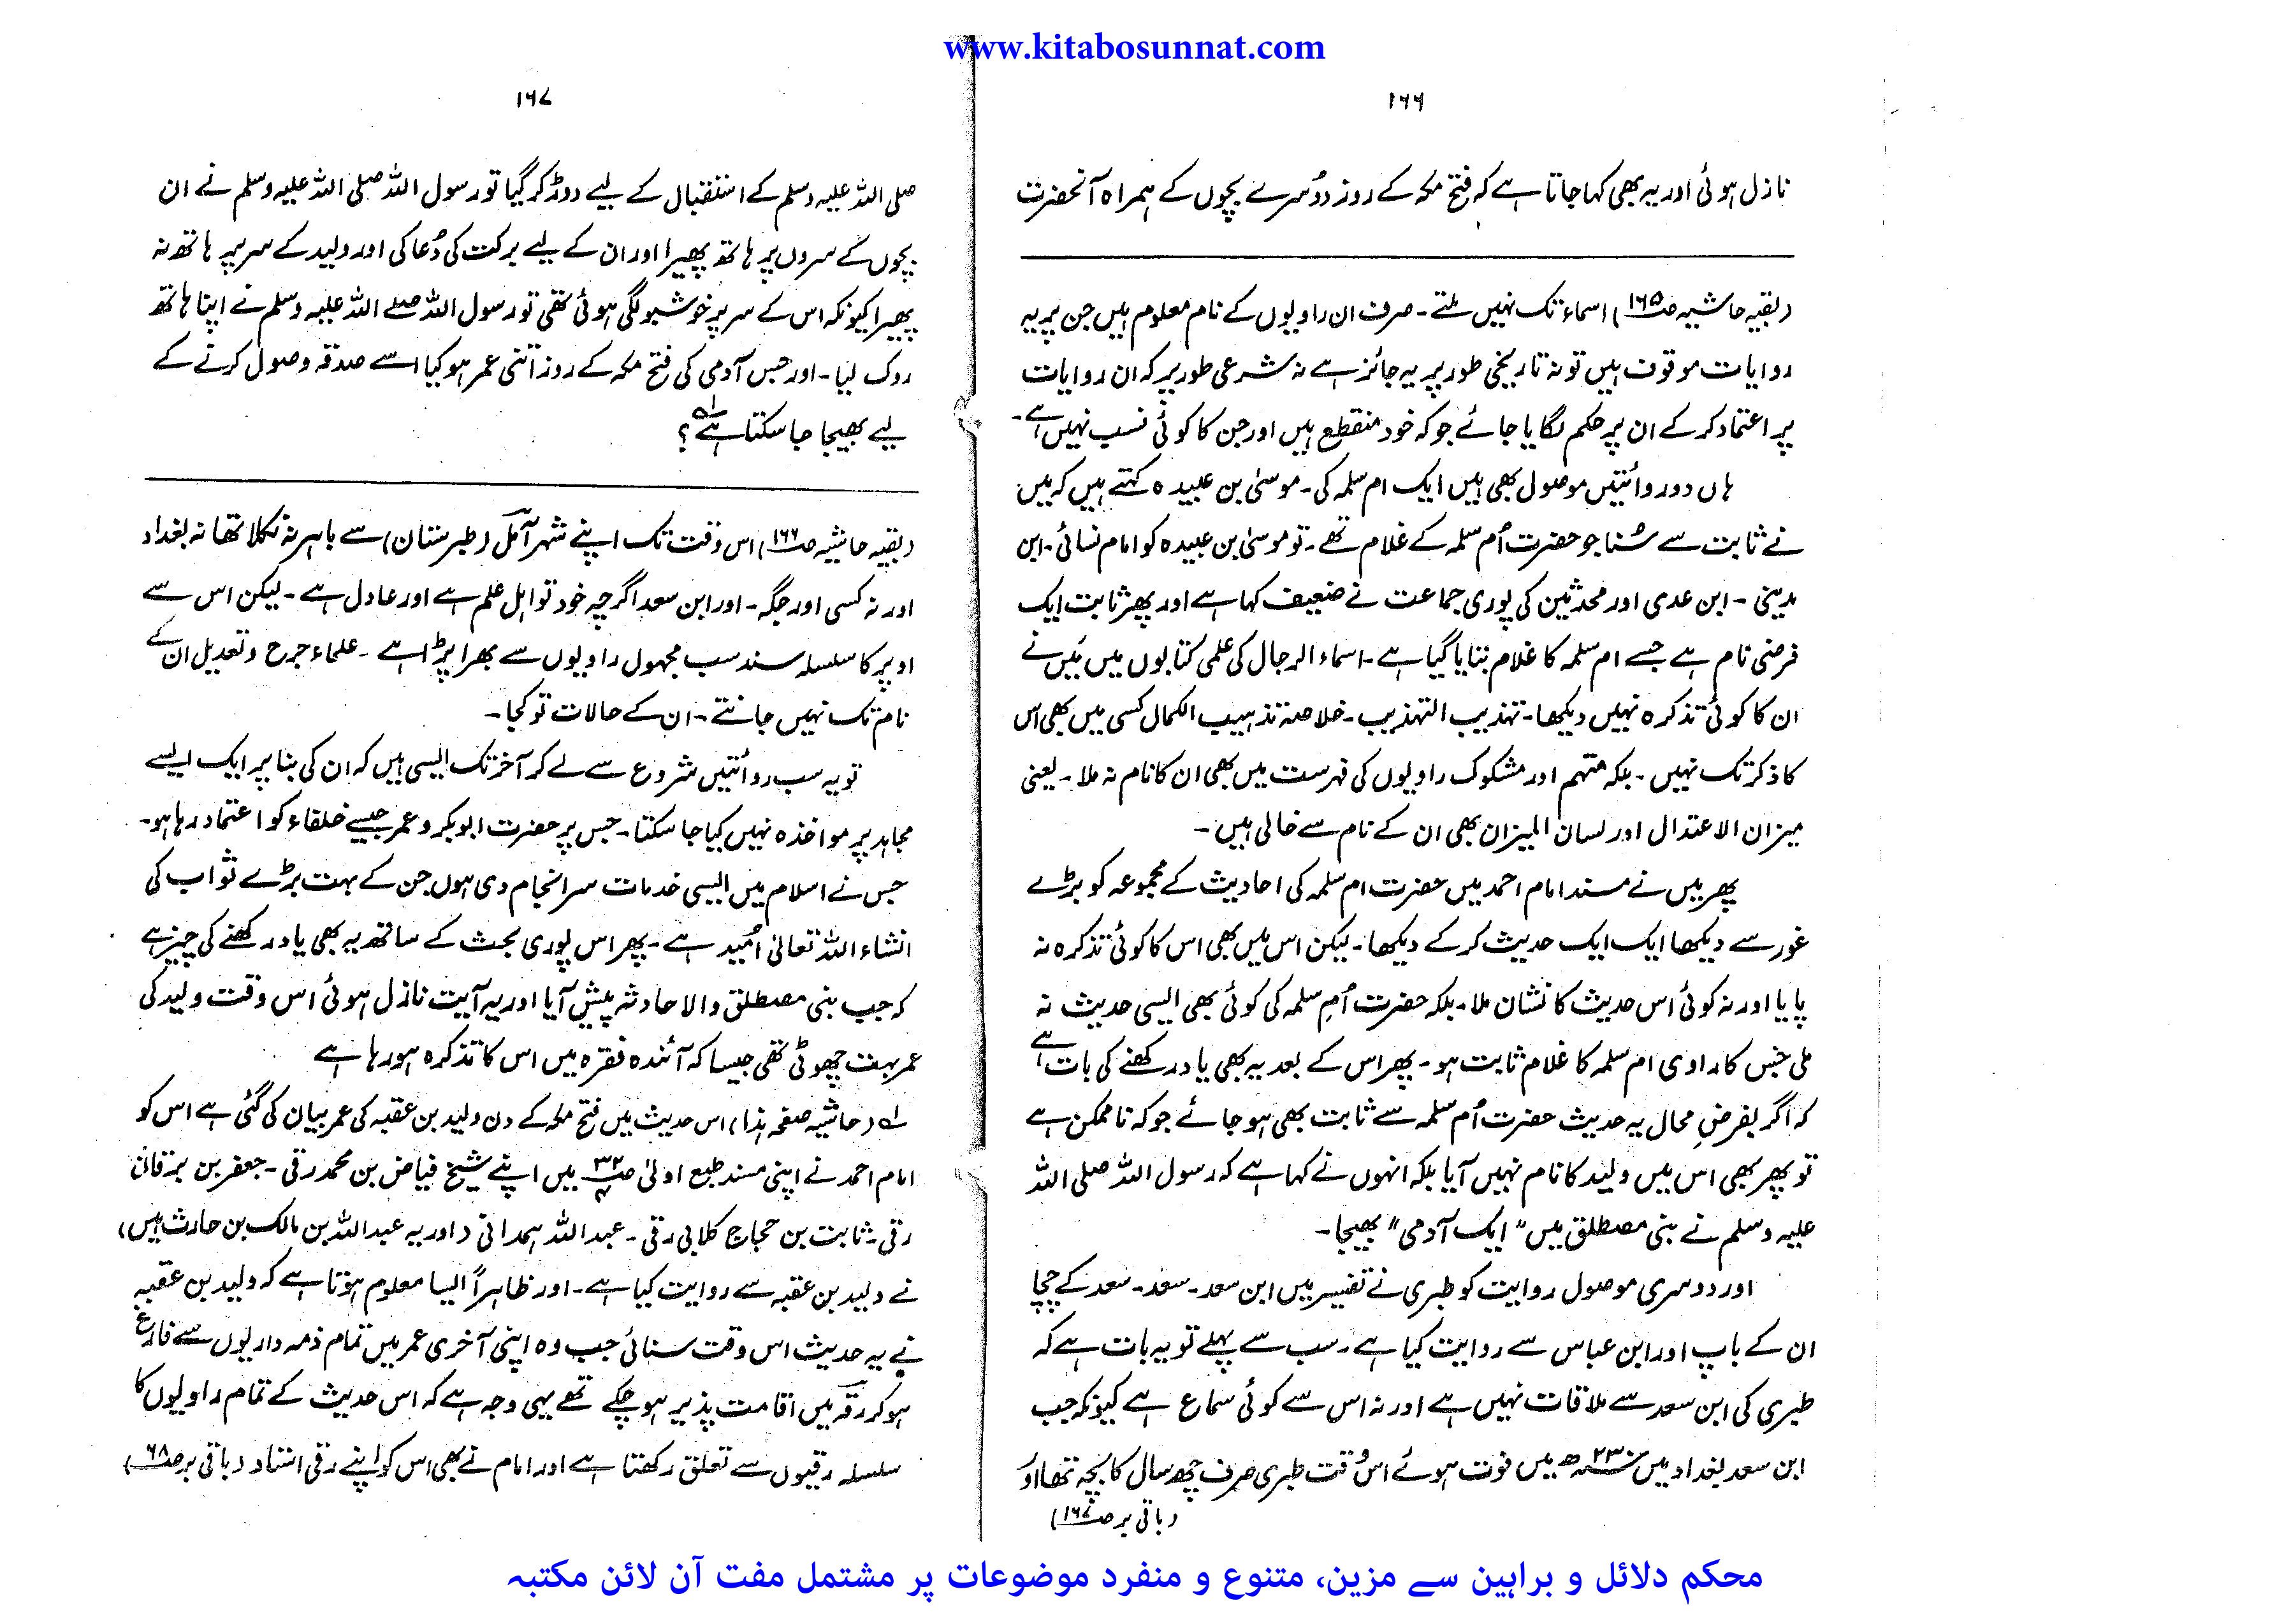 www.kitabosunnat.com
۱۶۶
نازل ہوئی اور یہ بھی کہا جاتا ہے کہ فتح مکہ کے روز دُوسرے بچوں کے ہمراہ آنحضرت
(بقیہ حاشیہ صـ۱۶۵) اسماء تک نہیں ملتے۔ صرف ان راویوں کے نام معلوم ہیں جن پر یہ
روایات موقوف ہیں تو نہ تاریخی طور پر یہ جائز ہے نہ شرعی طور پر کہ ان روایات
پر اعتماد کر کے ان پر حکم لگایا جائے جو کہ خود منقطع ہیں اور جن کا کوئی نسب نہیں ہے۔
ہاں دو روائتیں موصول بھی ہیں ایک ام سلمہ کی۔ موسیٰ بن عبیدہ کہتے ہیں کہ میں
نے ثابت سے سُنا جو حضرت اُم سلمہ کے غلام تھے۔ تو موسیٰ بن عبیدہ کو امام نسائی۔ ابن
مدینی ۔ ابن عدی اور محدثین کی پوری جماعت نے ضعیف کہا ہے اور پھر ثابت ایک
فرضی نام ہے جسے ام سلمہ کا غلام بنایا گیا ہے۔ اسماء الرجال کی علمی کتابوں میں مَیں نے
ان کا کوئی تذکرہ نہیں دیکھا۔ تہذیب التہذیب۔ خلاصہ تذہیب الکمال کسی میں بھی اس
کا ذکر تک نہیں ۔ بلکہ متہم اور مشکوک راویوں کی فہرست میں بھی ان کا نام نہ ملا ۔ یعنی
میزان الاعتدال اور لسان المیزان بھی ان کے نام سے خالی ہیں ۔
پھر میں نے مسند امام احمد میں حضرت ام سلمہ کی احادیث کے مجموعہ کو بڑے
غور سے دیکھا ایک ایک حدیث کر کے دیکھا ۔ لیکن اس میں بھی اس کا کوئی تذکرہ نہ
پایا اور نہ کوئی اس حدیث کا نشان ملا۔ بلکہ حضرت اُمِ سلمہ کی کوئی بھی ایسی حدیث نہ
ملی جس کا راوی ام سلمہ کا غلام ثابت ہو ۔ پھر اس کے بعد یہ بھی یاد رکھنے کی بات ہے
کہ اگر بفرضِ محال یہ حدیث حضرت اُم سلمہ سے ثابت بھی ہو جائے جو کہ ناممکن ہے
تو پھر بھی اس میں ولید کا نام نہیں آیا بلکہ انہوں نے کہا ہے کہ رسول اللہ صلی اللہ
علیہ وسلم نے بنی مصطلق میں " ایک آدمی " بھیجا ۔
اور دوسری موصول روایت کو طبری نے تفسیر میں ابن سعد۔ سعد۔ سعد کے چچا
ان کے باپ اور ابن عباس سے روایت کیا ہے ۔ سب سے پہلے تو یہ بات ہے کہ
طبری کی ابن سعد سے ملاقات نہیں ہے اور نہ اس سے کوئی سماع ہے کیونکہ جب
ابن سعد بغداد میں ۲۳۰ھ میں فوت ہوئے اس وقت طبری صرف چھ سال کا بچہ تھا اور
(باقی بر صـ۱۶۷)
۱۶۷
صلی اللہ علیہ وسلم کے استقبال کے لیے دوڑ کر گیا تو رسول اللہ صلی اللہ علیہ وسلم نے ان
بچوں کے سروں پر ہاتھ پھیرا اور ان کے لیے برکت کی دُعا کی اور ولید کے سر پر ہاتھ نہ
پھیرا کیونکہ اس کے سر پر خوشبو لگی ہوئی تھی تو رسول اللہ صلے اللہ علیہ وسلم نے اپنا ہاتھ
روک لیا ۔ اور جس آدمی کی فتح مکہ کے روز اتنی عمر ہو کیا اسے صدقہ وصول کرنے کے
لیے بھیجا جا سکتا ہے؂۱ ؟
(بقیہ حاشیہ صـ۱۶۶) اس وقت تک اپنے شہر آمل (طبرستان) سے باہر نہ نکلا تھا نہ بغداد
اور نہ کسی اور جگہ ۔ اور ابن سعد اگرچہ خود تو اہل علم ہے اور عادل ہے ۔ لیکن اس سے
اوپر کا سلسلہ سند سب مجہول راویوں سے بھرا پڑا ہے ۔ علماء جرح و تعدیل ان کے
نام تک نہیں جانتے ۔ ان کے حالات تو کجا ۔
تو یہ سب روائتیں شروع سے لے کر آخر تک ایسی ہیں کہ ان کی بنا پر ایک ایسے
مجاہد پر مواخذہ نہیں کیا جا سکتا ۔ جس پر حضرت ابوبکر و عمر جیسے خلفاء کو اعتماد رہا ہو ۔
جس نے اسلام میں ایسی خدمات سرانجام دی ہوں جن کے بہت بڑے ثواب کی
انشاء اللہ تعالیٰ اُمید ہے ۔ پھر اس پوری بحث کے ساتھ یہ بھی یاد رکھنے کی چیز ہے
کہ جب بنی مصطلق والا حادثہ پیش آیا اور یہ آیت نازل ہوئی اس وقت ولید کی
عمر بہت چھوٹی تھی جیسا کہ آئندہ فقرہ میں اس کا تذکرہ ہو رہا ہے
؂۱ (حاشیہ صفحہ ہذا) اس حدیث میں فتح مکہ کے دن ولید بن عقبہ کی عمر بیان کی گئی ہے اس کو
امام احمد نے اپنی مسند طبع اولیٰ صـ۳۲/۴ میں اپنے شیخ فیاض بن محمد رقی ۔ جعفر بن برقان
رقی ۔ ثابت بن حجاج کلابی رقی ۔ عبداللہ ہمدانی (اور یہ عبداللہ بن مالک بن حارث ہیں)
نے ولید بن عقبہ سے روایت کیا ہے ۔ اور ظاہراً ایسا معلوم ہوتا ہے کہ ولید بن عقبہ
نے یہ حدیث اس وقت سنائی جب وہ اپنی آخری عمر میں تمام ذمہ داریوں سے فارغ
ہو کر رقہ میں اقامت پذیر ہو چکے تھے یہی وجہ ہے کہ اس حدیث کے تمام راویوں کا
سلسلہ رقیوں سے تعلق رکھتا ہے اور امام نے بھی اس کو اپنے رقی استاد (باقی بر صـ۶۸)
محکم دلائل و براہین سے مزین، متنوع و منفرد موضوعات پر مشتمل مفت آن لائن مکتبہ